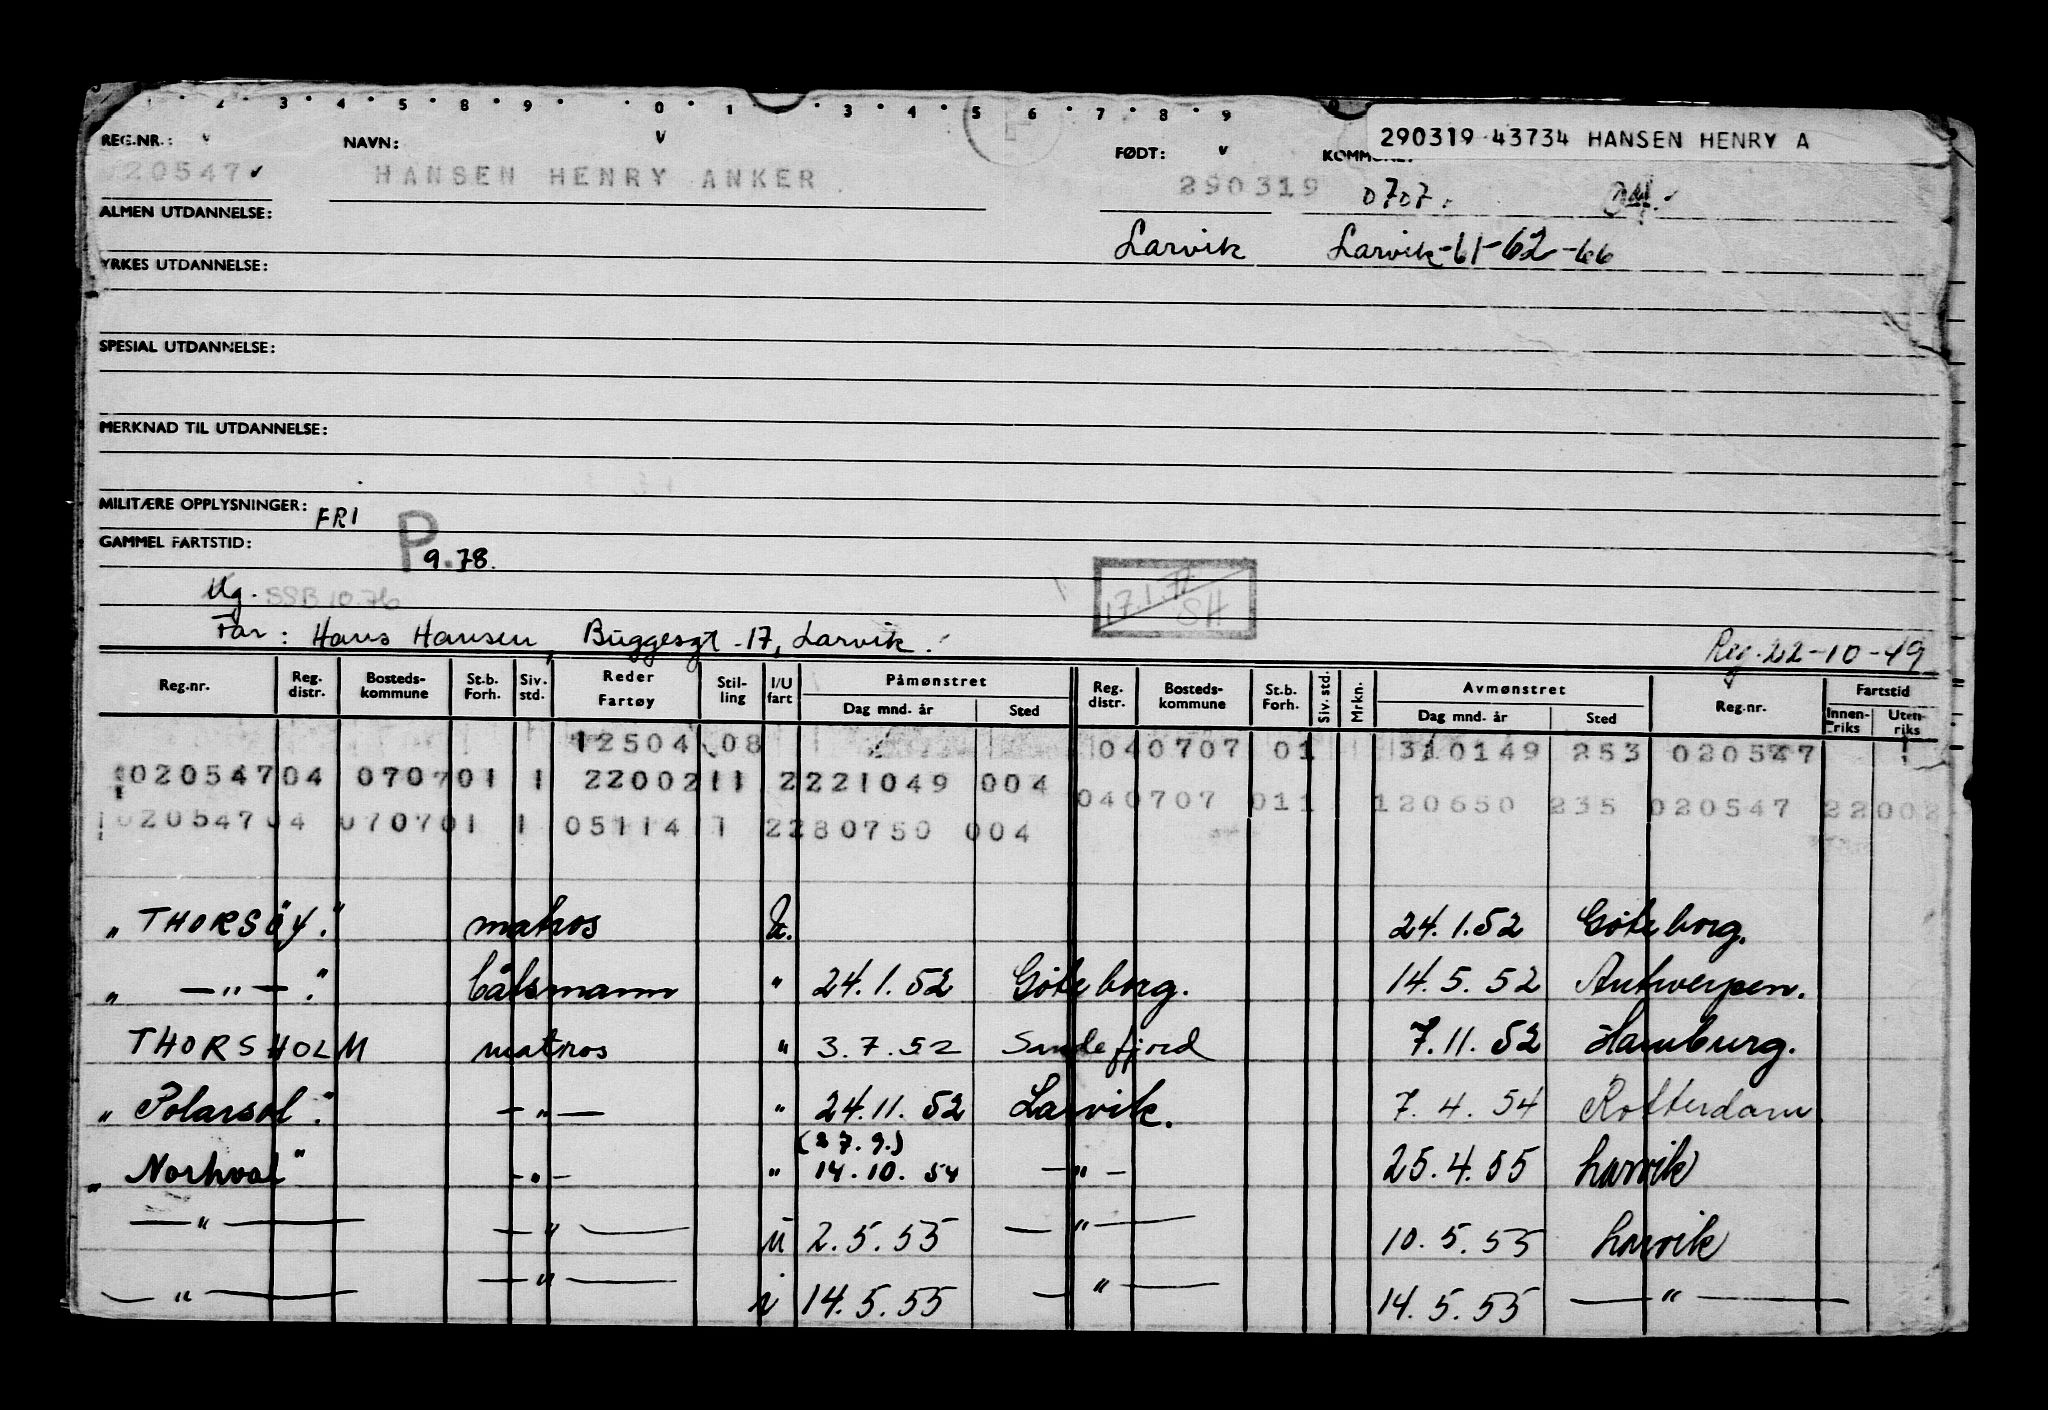 1 2 3 4 5 8 9 0 1 3 4 5 6 7 8 9
290319 43734 HANSEN HENRY A
REG.NR.: v NAVN: v FØDT: v
020547 HANSEN HENRY ANKER 290319 0707.
ALMEN UTDANNELSE:
Larvik Larvik-61-62-66
YRKES UTDANNELSE:
SPESIAL UTDANNELSE:
MERKNAD TIL UTDANNELSE:
MILITÆRE OPPLYSNINGER: FRI
GAMMEL FARTSTID: P 9.78.
Ug. SSB 10.76 17.1.72 SH
Far: Hans Hansen, Buggesgt. 17, Larvik. Reg. 22-10-49
Reg.nr. Reg. distr. Bosteds-kommune St.b. Forh. Siv. std. Reder Fartøy Stil-ling I/U fart Påmønstret Dag mnd. år Sted Reg. distr. Bosteds-kommune St.b. Forh. Siv. std. Mrkn. Avmønstret Dag mnd. år Sted Reg.nr. Fartstid Innen-riks Uten-riks
12504 08 040707 01 310149 253 020547
020547 04 0707 01 1 22002 11 2 221049 004 040707 011 120650 235 020547 22002
020547 04 0707 01 1 05114 1 2 280750 004
„THORSÖY." matros U. 24.1.52 Göteborg.
„ —"— ." båtsmann " 24.1.52 Göteborg. 14.5.52 Antwerpen.
THORSHOLM matros " 3.7.52 Sandefjord 7.11.52 Hamburg.
„Polarsol." —"— " 24.11.52 Larvik. 7.4.54 Rotterdam
(27.9.)
„Norhval" —"— " 14.10.54 —"— 25.4.55 Larvik
—"— —"— u 2.5.55 —"— 10.5.55 Larvik
—"— —"— i 14.5.55 —"— 14.5.55 —"—